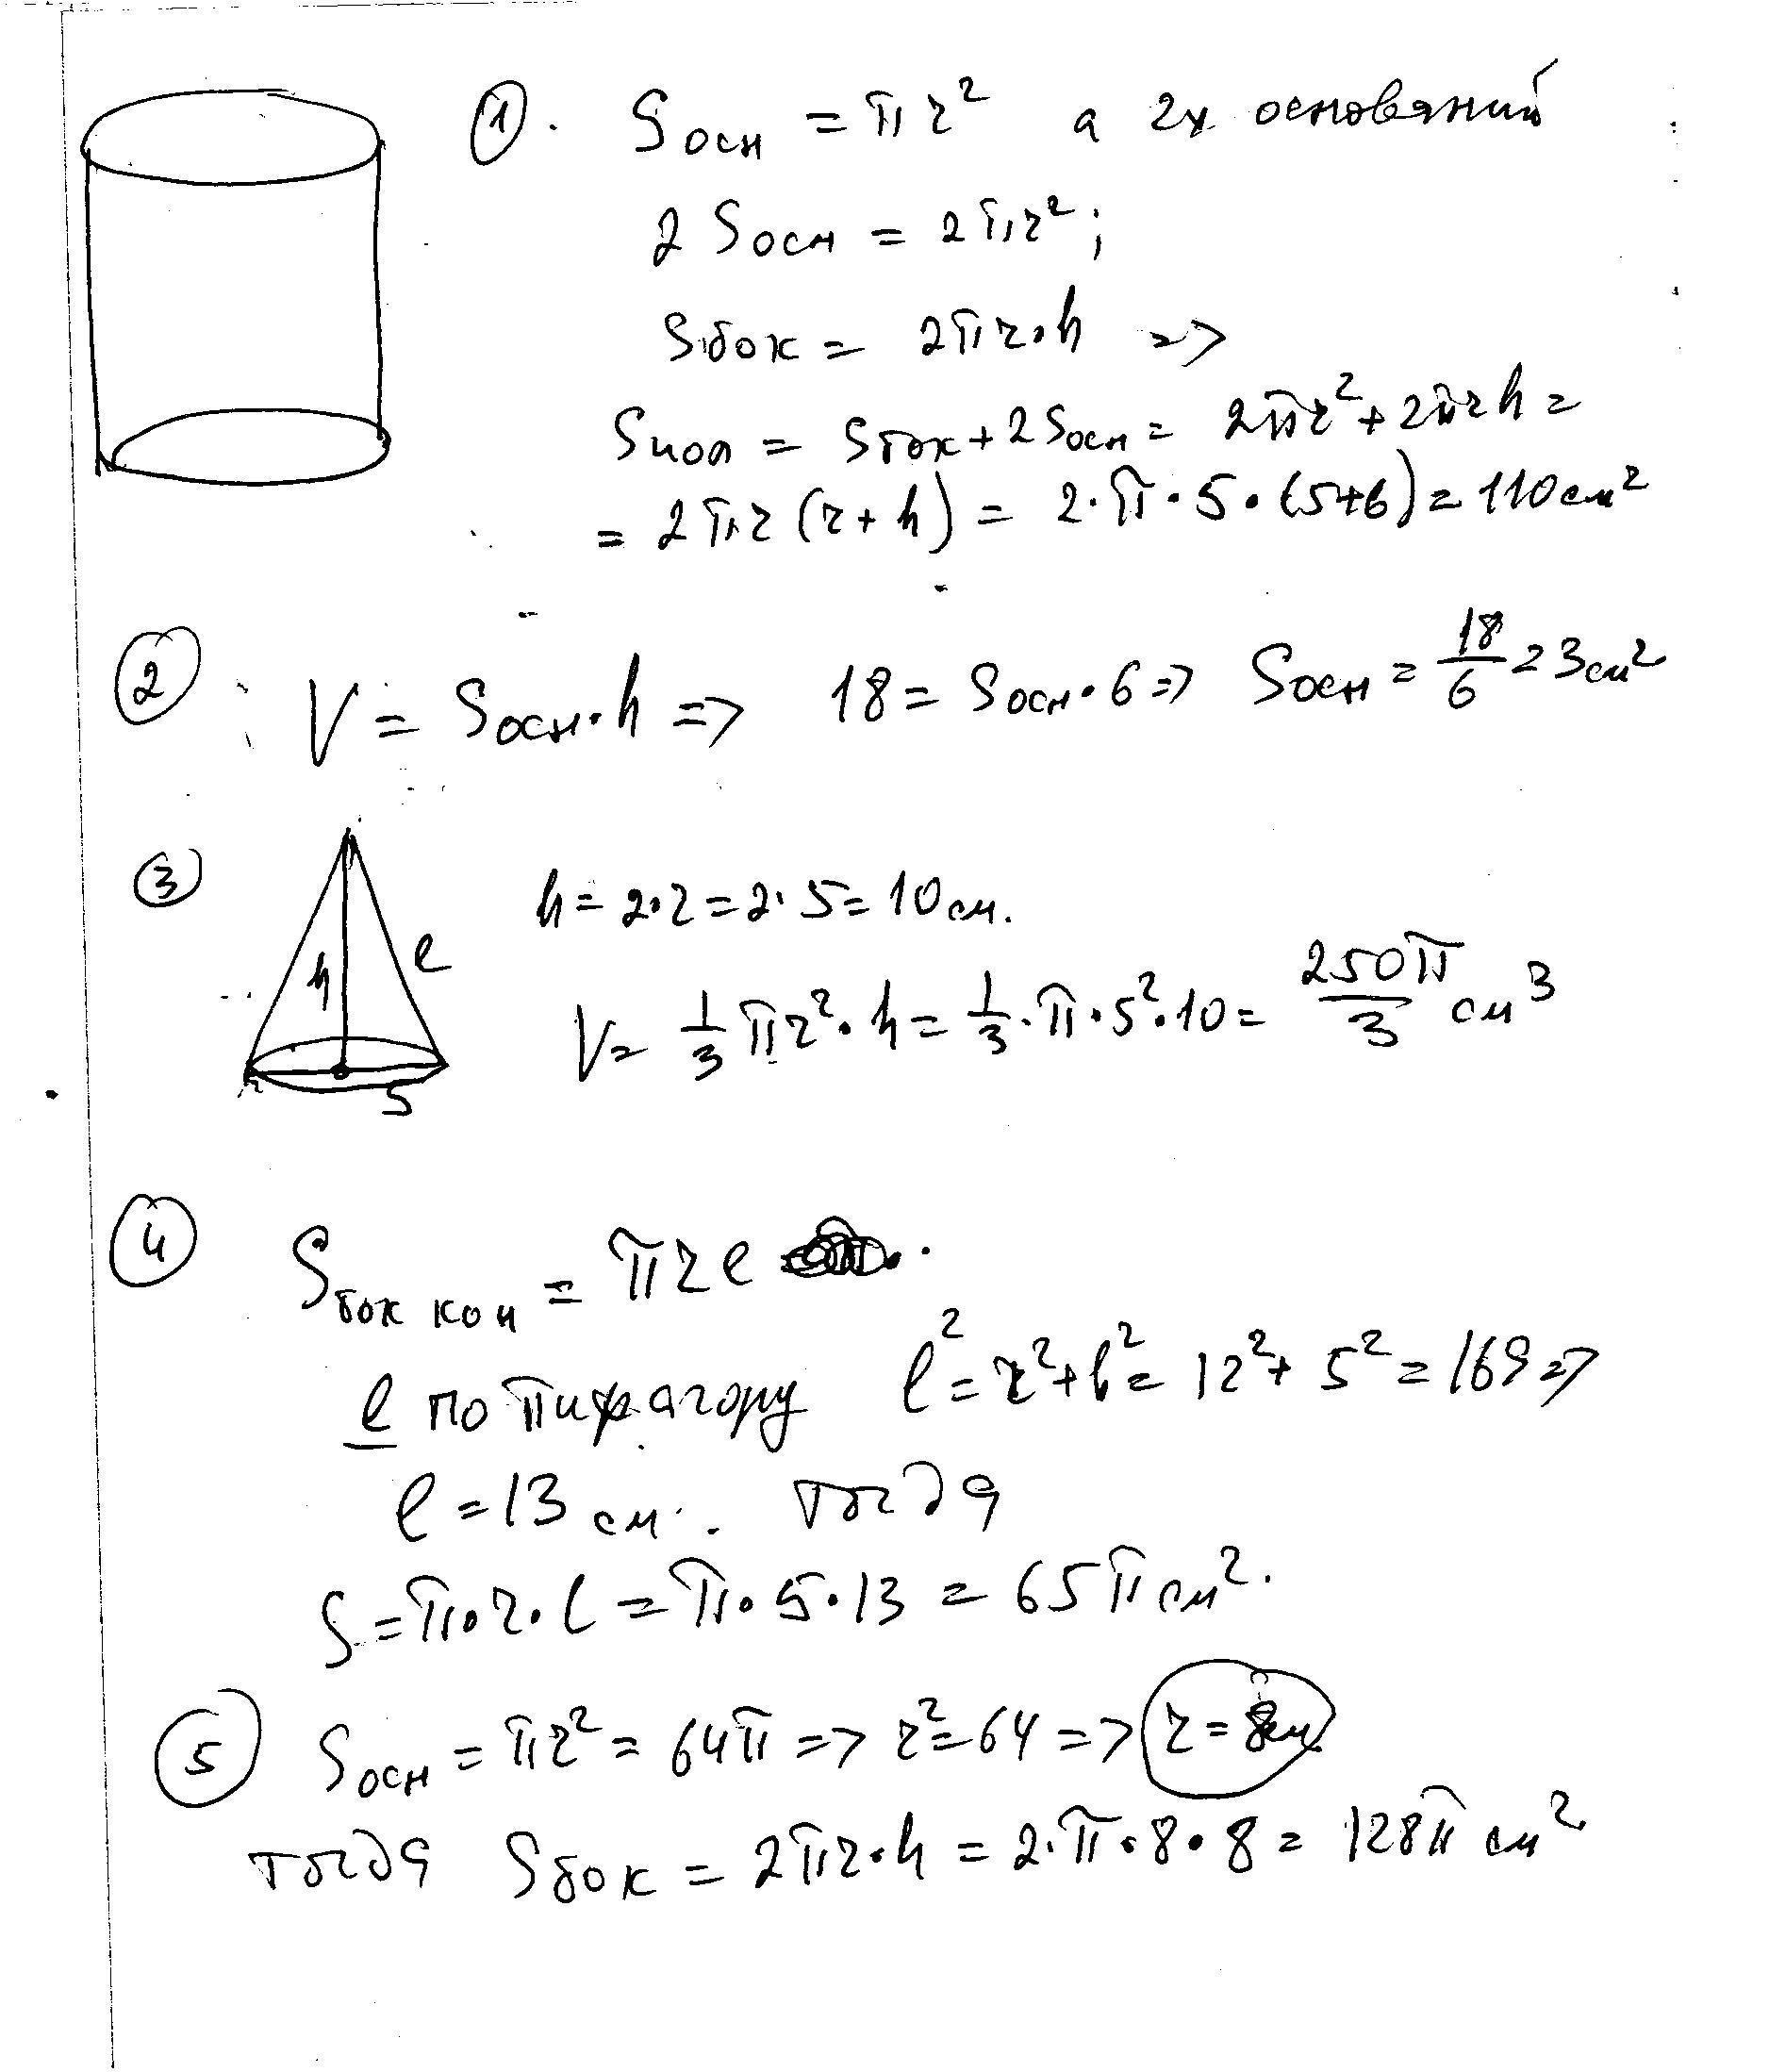 1. Sосн = πr² а 2х оснований
2 Sосн = 2πr²;
Sбок = 2πr·h =>
Sпол = Sбок + 2Sосн = 2πr² + 2πrh =
= 2πr(r + h) = 2·π·5·(5+6) = 110 см²
2 V = Sосн·h => 18 = Sосн·6 => Sосн = 18/6 = 3 см²
3 h = 2·r = 2·5 = 10 см.
h l
V = 1/3 πr²·h = 1/3·π·5²·10 = 250π/3 см³
5
4 Sбок кон = πrl
l по пифагору l² = r² + h² = 12² + 5² = 169 =>
l = 13 см. тогда
S = π·r·l = π·5·13 = 65π см².
5 Sосн = πr² = 64π => r² = 64 => r = 8см
тогда Sбок = 2πr·h = 2·π·8·8 = 128π см²